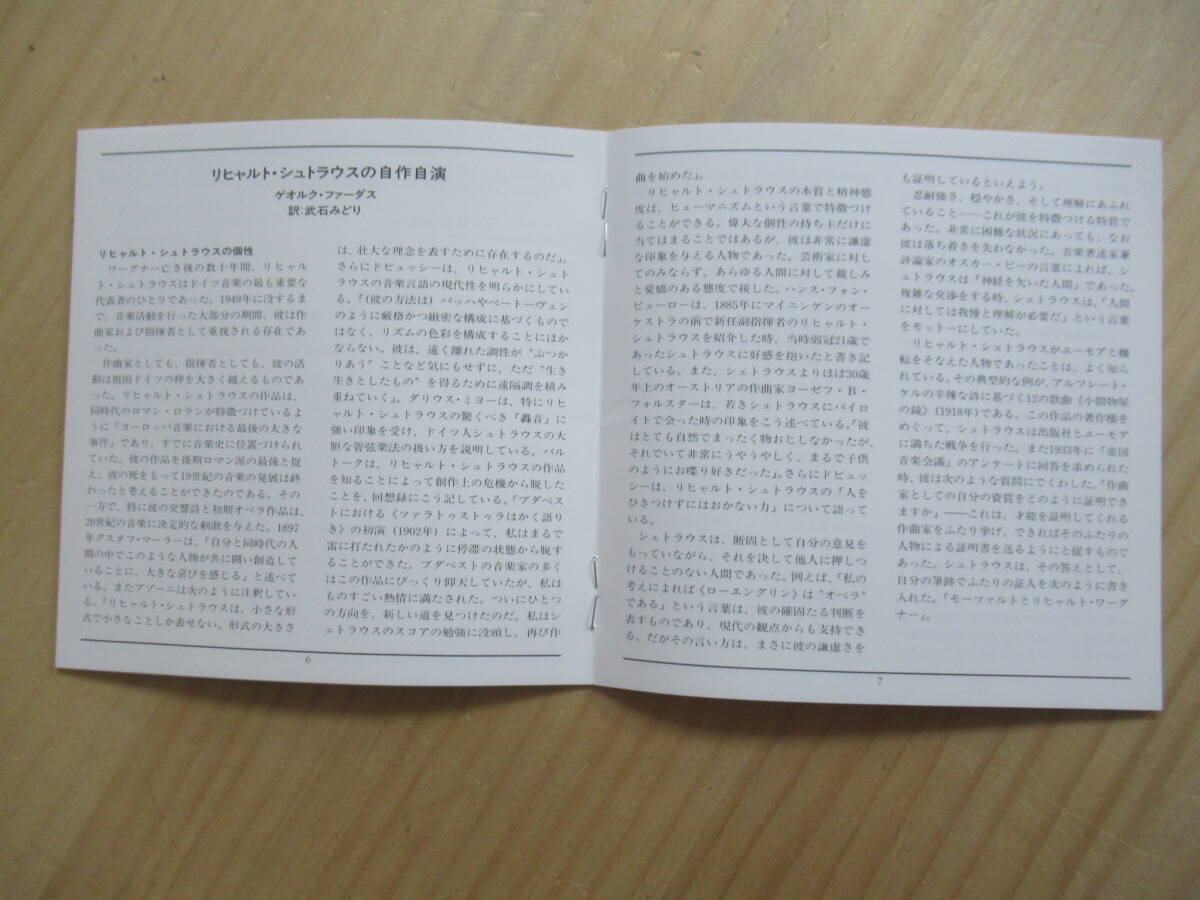 リヒャルト・シュトラウスの自作自演
ゲオルク・ファーダス
訳:武石みどり
リヒャルト・シュトラウスの個性
ワーグナー亡き後の数十年間、リヒャル
ト・シュトラウスはドイツ音楽の最も重要な
代表者のひとりであった。1949年に没するま
で、音楽活動を行った大部分の期間、彼は作
曲家および指揮者として重視される存在であ
った。
作曲家としても、指揮者としても、彼の活
動は祖国ドイツの枠を大きく越えるものであ
った。リヒャルト・シュトラウスの作品は、
同時代のロマン・ロランが特徴づけているよ
うに『ヨーロッパ音楽における最後の大きな
事件』であり、すでに音楽史に位置づけられ
ていた。彼の作品を後期ロマン派の最後と捉
え、彼の死をもって19世紀の音楽の発展は終
わったと考えることができたのである。その
一方で、特に彼の交響詩と初期オペラ作品は、
20世紀の音楽に決定的な刺激を与えた。1897
年グスタフ・マーラーは、「自分と同時代の人
間の中でこのような人物が共に闘い創造して
いることに、大きな喜びを感じる」と述べて
いる。またブゾーニは次のように注釈してい
る。「リヒャルト・シュトラウスは、小さな形
式で小さなことしか表せない。形式の大きさ
は、壮大な理念を表すために存在するのだ」。
さらにドビュッシーは、リヒャルト・シュト
ラウスの音楽言語の現代性を明らかにしてい
る。「(彼の方法は)バッハやベートーヴェン
のように厳格かつ緻密な構成に基づくもので
はなく、リズムの色彩を構成することにほか
ならない。彼は、遠く離れた調性が〝ぶつか
りあう〟ことなど気にもせずに、ただ〝生き
生きとしたもの〟を得るために遠隔調を積み
重ねていく」。ダリウス・ミヨーは、特にリヒ
ャルト・シュトラウスの驚くべき『轟音』に
強い印象を受け、ドイツ人シュトラウスの大
胆な管弦楽法の扱い方を説明している。バル
トークは、リヒャルト・シュトラウスの作品
を知ることによって創作上の危機から脱した
ことを、回想録にこう記している。「ブダペス
トにおける《ツァラトゥストゥラはかく語り
き》の初演(1902年)によって、私はまるで
雷に打たれたかのように停滞の状態から脱す
ることができた。ブダペストの音楽家の多く
はこの作品にびっくり仰天していたが、私は
ものすごい熱情に満たされた。ついにひとつ
の方向を、新しい道を見つけたのだ。私はシ
ュトラウスのスコアの勉強に没頭し、再び作
6
曲を始めた」。
リヒャルト・シュトラウスの本質と精神態
度は、ヒューマニズムという言葉で特徴づけ
ることができる。偉大な個性の持ち主だけに
当てはまることではあるが、彼は非常に謙虚
な印象を与える人物であった。芸術家に対し
てのみならず、あらゆる人間に対して親しみ
と愛嬌のある態度で接した。ハンス・フォン・
ビューローは、1885年にマイニンゲンのオー
ケストラの前で新任副指揮者のリヒャルト・
シュトラウスを紹介した時、当時弱冠21歳で
あったシュトラウスに好感を抱いたと書き記
している。また、シュトラウスよりほぼ30歳
年上のオーストリアの作曲家ヨーゼフ・B・
フォルスターは、若きシュトラウスにバイロ
イトで会った時の印象をこう述べている。「彼
はとても自然でまったく物おじしなかったが、
それでいて非常にうやうやしく、まるで子供
のようにお喋り好きだった」。さらにドビュッ
シーは、リヒャルト・シュトラウスの「人を
ひきつけずにはおかない力」について語って
いる。
シュトラウスは、断固として自分の意見を
もっていながら、それを決して他人に押しつ
けることのない人間であった。例えば、「私の
考えによれば《ローエングリン》は〝オペラ〟
である」という言葉は、彼の確固たる判断を
表すものであり、現代の観点からも支持でき
る。だがその言い方は、まさに彼の謙虚さを
も証明しているといえよう。
忍耐強さ、穏やかさ、そして理解にあふれ
ていること……これが彼を特徴づける特質で
あった。非常に困難な状況にあっても、なお
彼は落ち着きを失わなかった。音楽著述家兼
評論家のオスカー・ビーの言葉によれば、シ
ュトラウスは「神経を欠いた人間」であった。
複雑な交渉をする時、シュトラウスは、「人間
に対しては我慢と理解が必要だ」という言葉
をモットーにしていた。
リヒャルト・シュトラウスがユーモアと機
転をそなえた人物であったことは、よく知ら
れている。その典型的な例が、アルフレート・
ケルの辛辣な詩に基づく12の歌曲《小間物屋
の鏡》(1918年)である。この作品の著作権を
めぐって、シュトラウスは出版社とユーモア
に満ちた戦争を行った。また1933年に「帝国
音楽会議」のアンケートに回答を求められた
時、彼は次のような質問にでくわした。「作曲
家としての自分の資質をどのように証明でき
ますか」——これは、才能を証明してくれる
作曲家をふたり挙げ、できればそのふたりの
人物による証明書を送るようにと促すもので
あった。シュトラウスは、その答えとして、
自分の筆跡でふたりの証人を次のように書き
入れた。「モーツァルトとリヒャルト・ワーグ
ナー」。
7